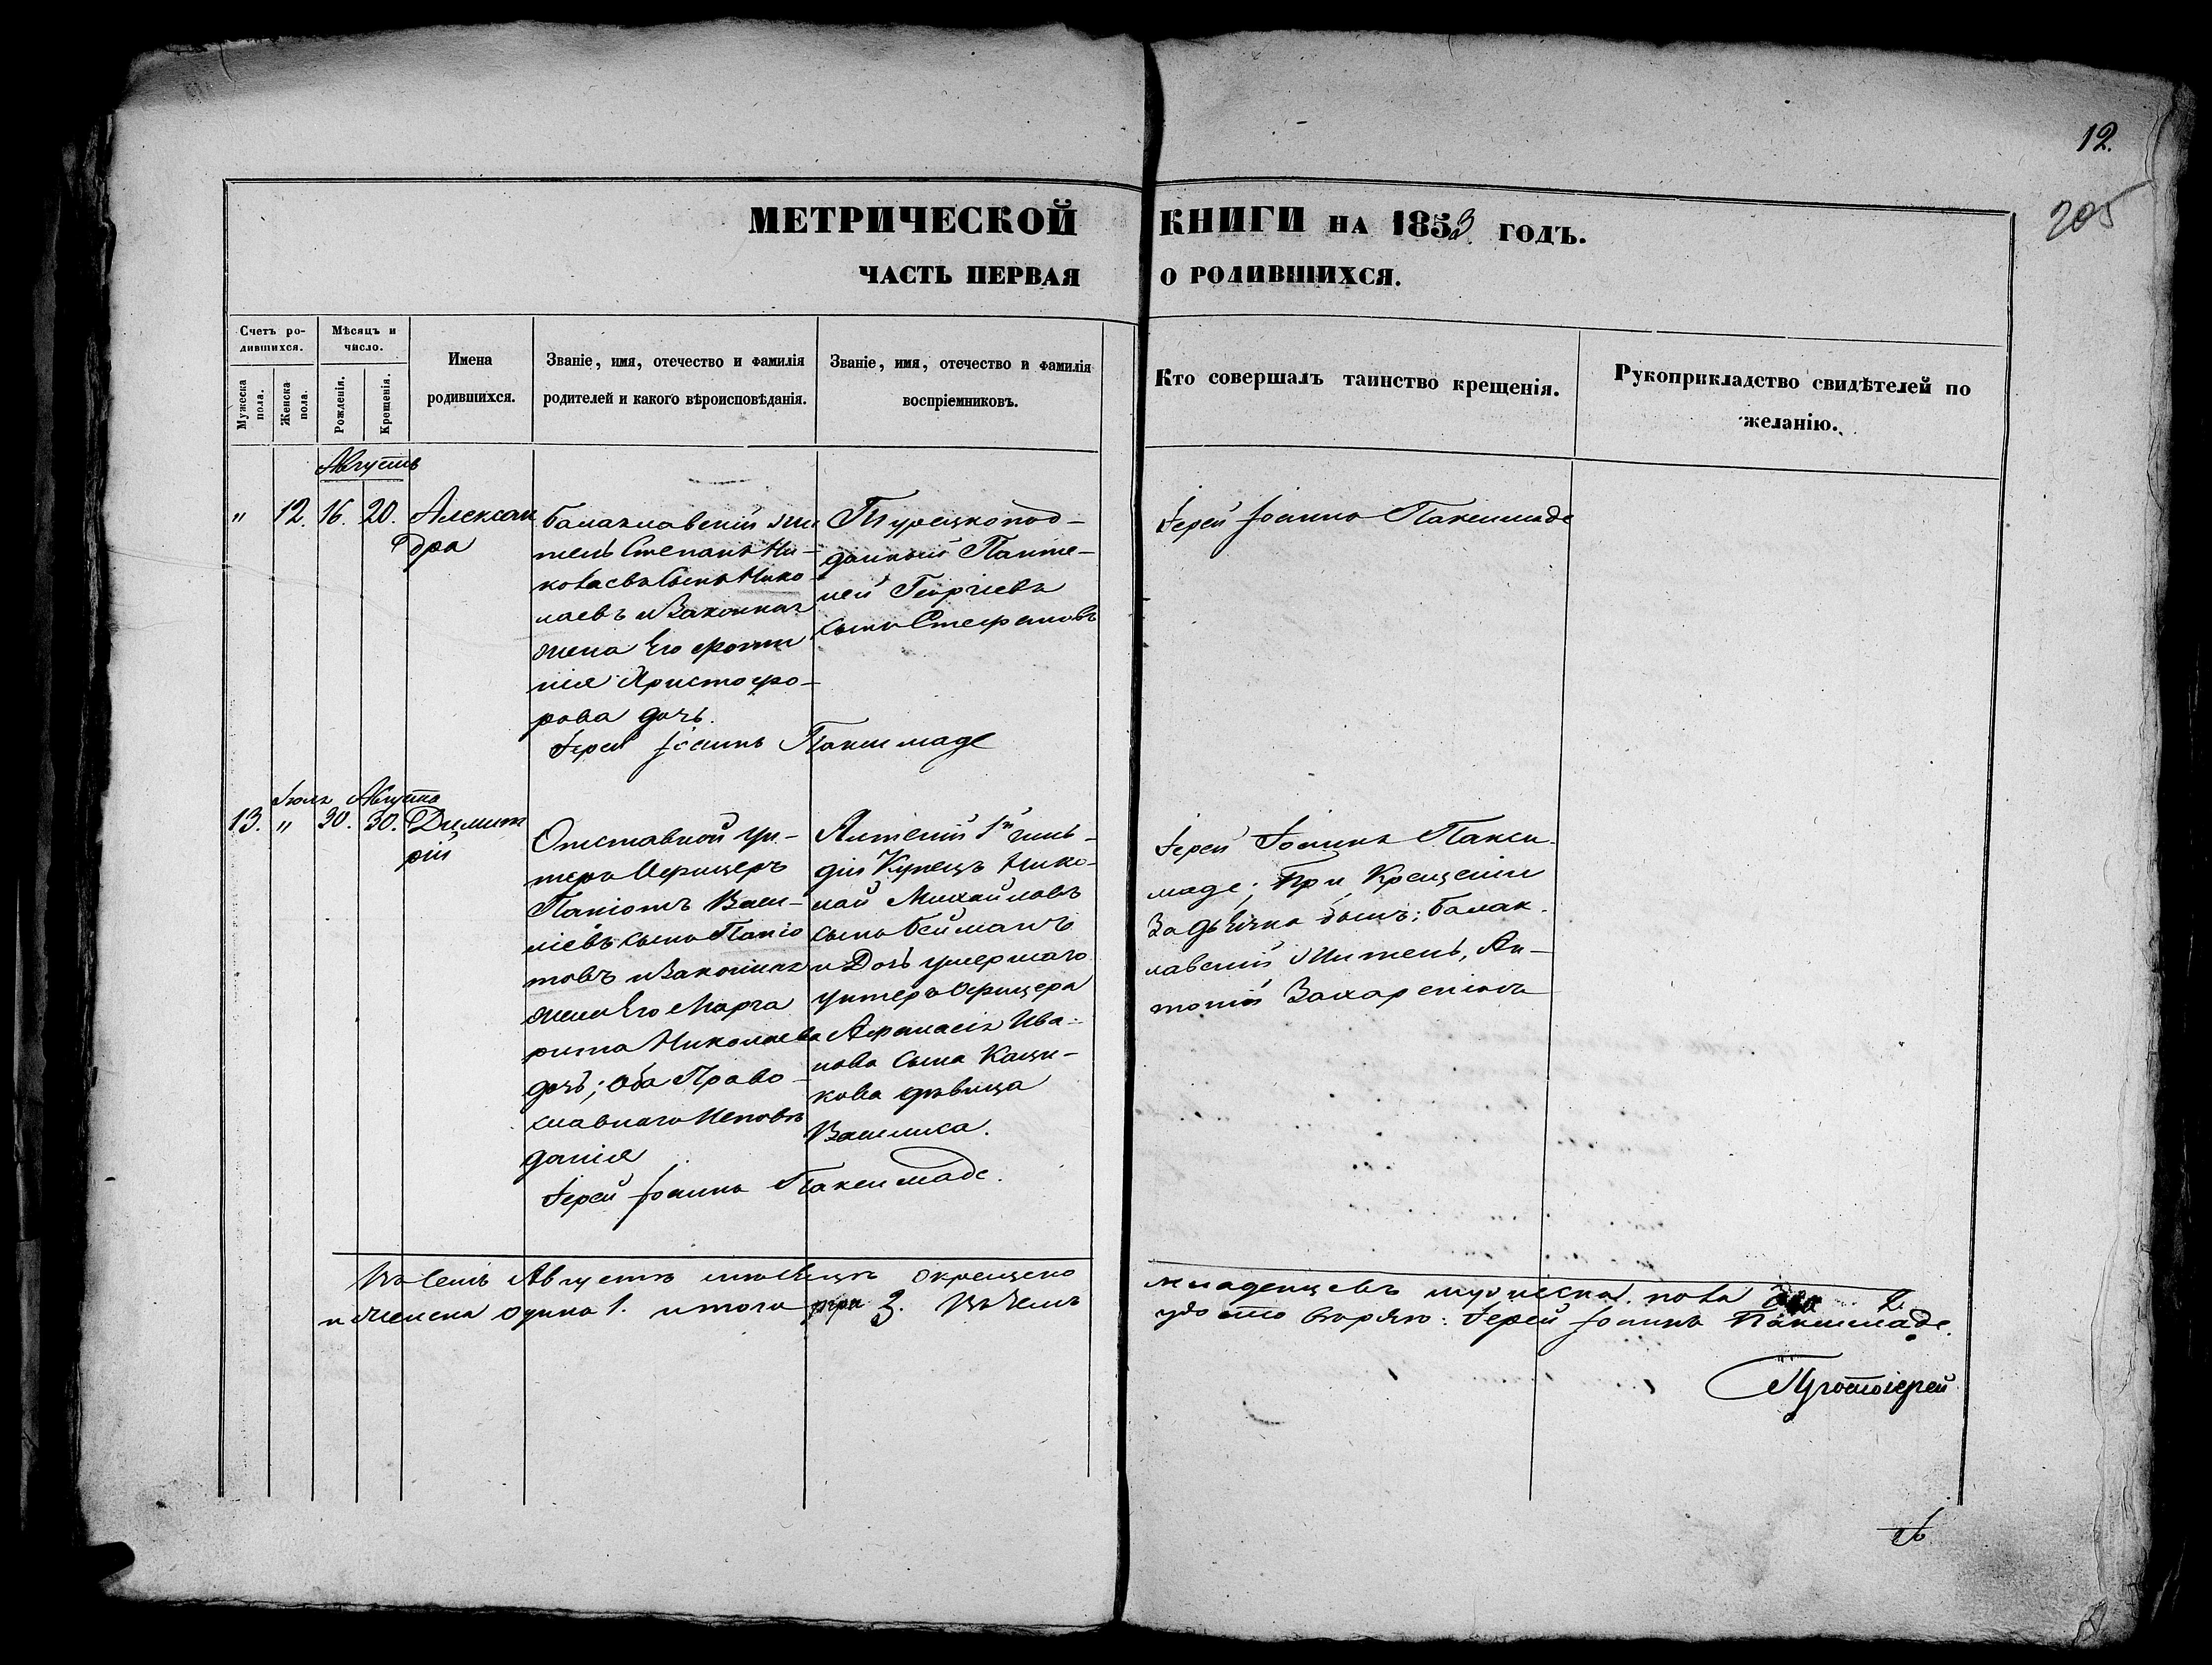 12.
205
МЕТРИЧЕСКОЙ КНИГИ НА 1853 ГОДЪ.
ЧАСТЬ ПЕРВАЯ О РОДИВШИХСЯ.
Счетъ ро-
дившихся.
Мужеска пола.
Женска пола.
Мѣсяцъ и
число.
Рожденія.
Крещенія.
Имена
родившихся.
Званіе, имя, отечество и фамилія
родителей и какого вѣроисповѣданія.
Званіе, имя, отечество и фамилія
воспріемниковъ.
Кто совершалъ таинство крещенія.
Рукоприкладство свидѣтелей по
желанію.
Августъ
" 12. 16. 20.
Алексан
дра
Балаклавскій жи
тель Степанъ Ни-
колаевъ сынъ Нико
лаевъ и Законная
жена Его Фоти
нія Христофо-
рова дочь.
Турецкопод-
данный Панте-
лей Георгіевъ
сынъ Стефановъ
Іерей Іоаннъ Паксимаде
Іерей Іоаннъ Паксимаде
Іюля Августа
13. " 30. 30.
Димит
рій
Отставной Ун-
теръ Офицеръ
Панiотъ Васи-
ліевъ сынъ Панiо
товъ и Законная
жена Его Марга
рита Николаева
дочь; Оба Право-
славнаго Исповѣ
данія
Ялтскій 1й гиль-
діи Купецъ Нико-
лай Михайловъ
сынъ
и Дочь умершаго
унтеръ Офицера
Афанасія Ива-
нова Сына
кова дѣвица
Василиса.
Іерей Іоаннъ Пакси-
маде; При Крещеніи
За дьячка былъ: Балак-
лавскій Житель, Ан-
тоній
Іерей Іоаннъ Паксимаде.
Въ семъ Августѣ мѣсяцѣ окрещено младенцевъ мужеска пола два 2.
и женска одинъ 1. итого три 3. Въ чемъ удостовѣряю: Іерей Іоаннъ Паксимаде.
Протоіерей